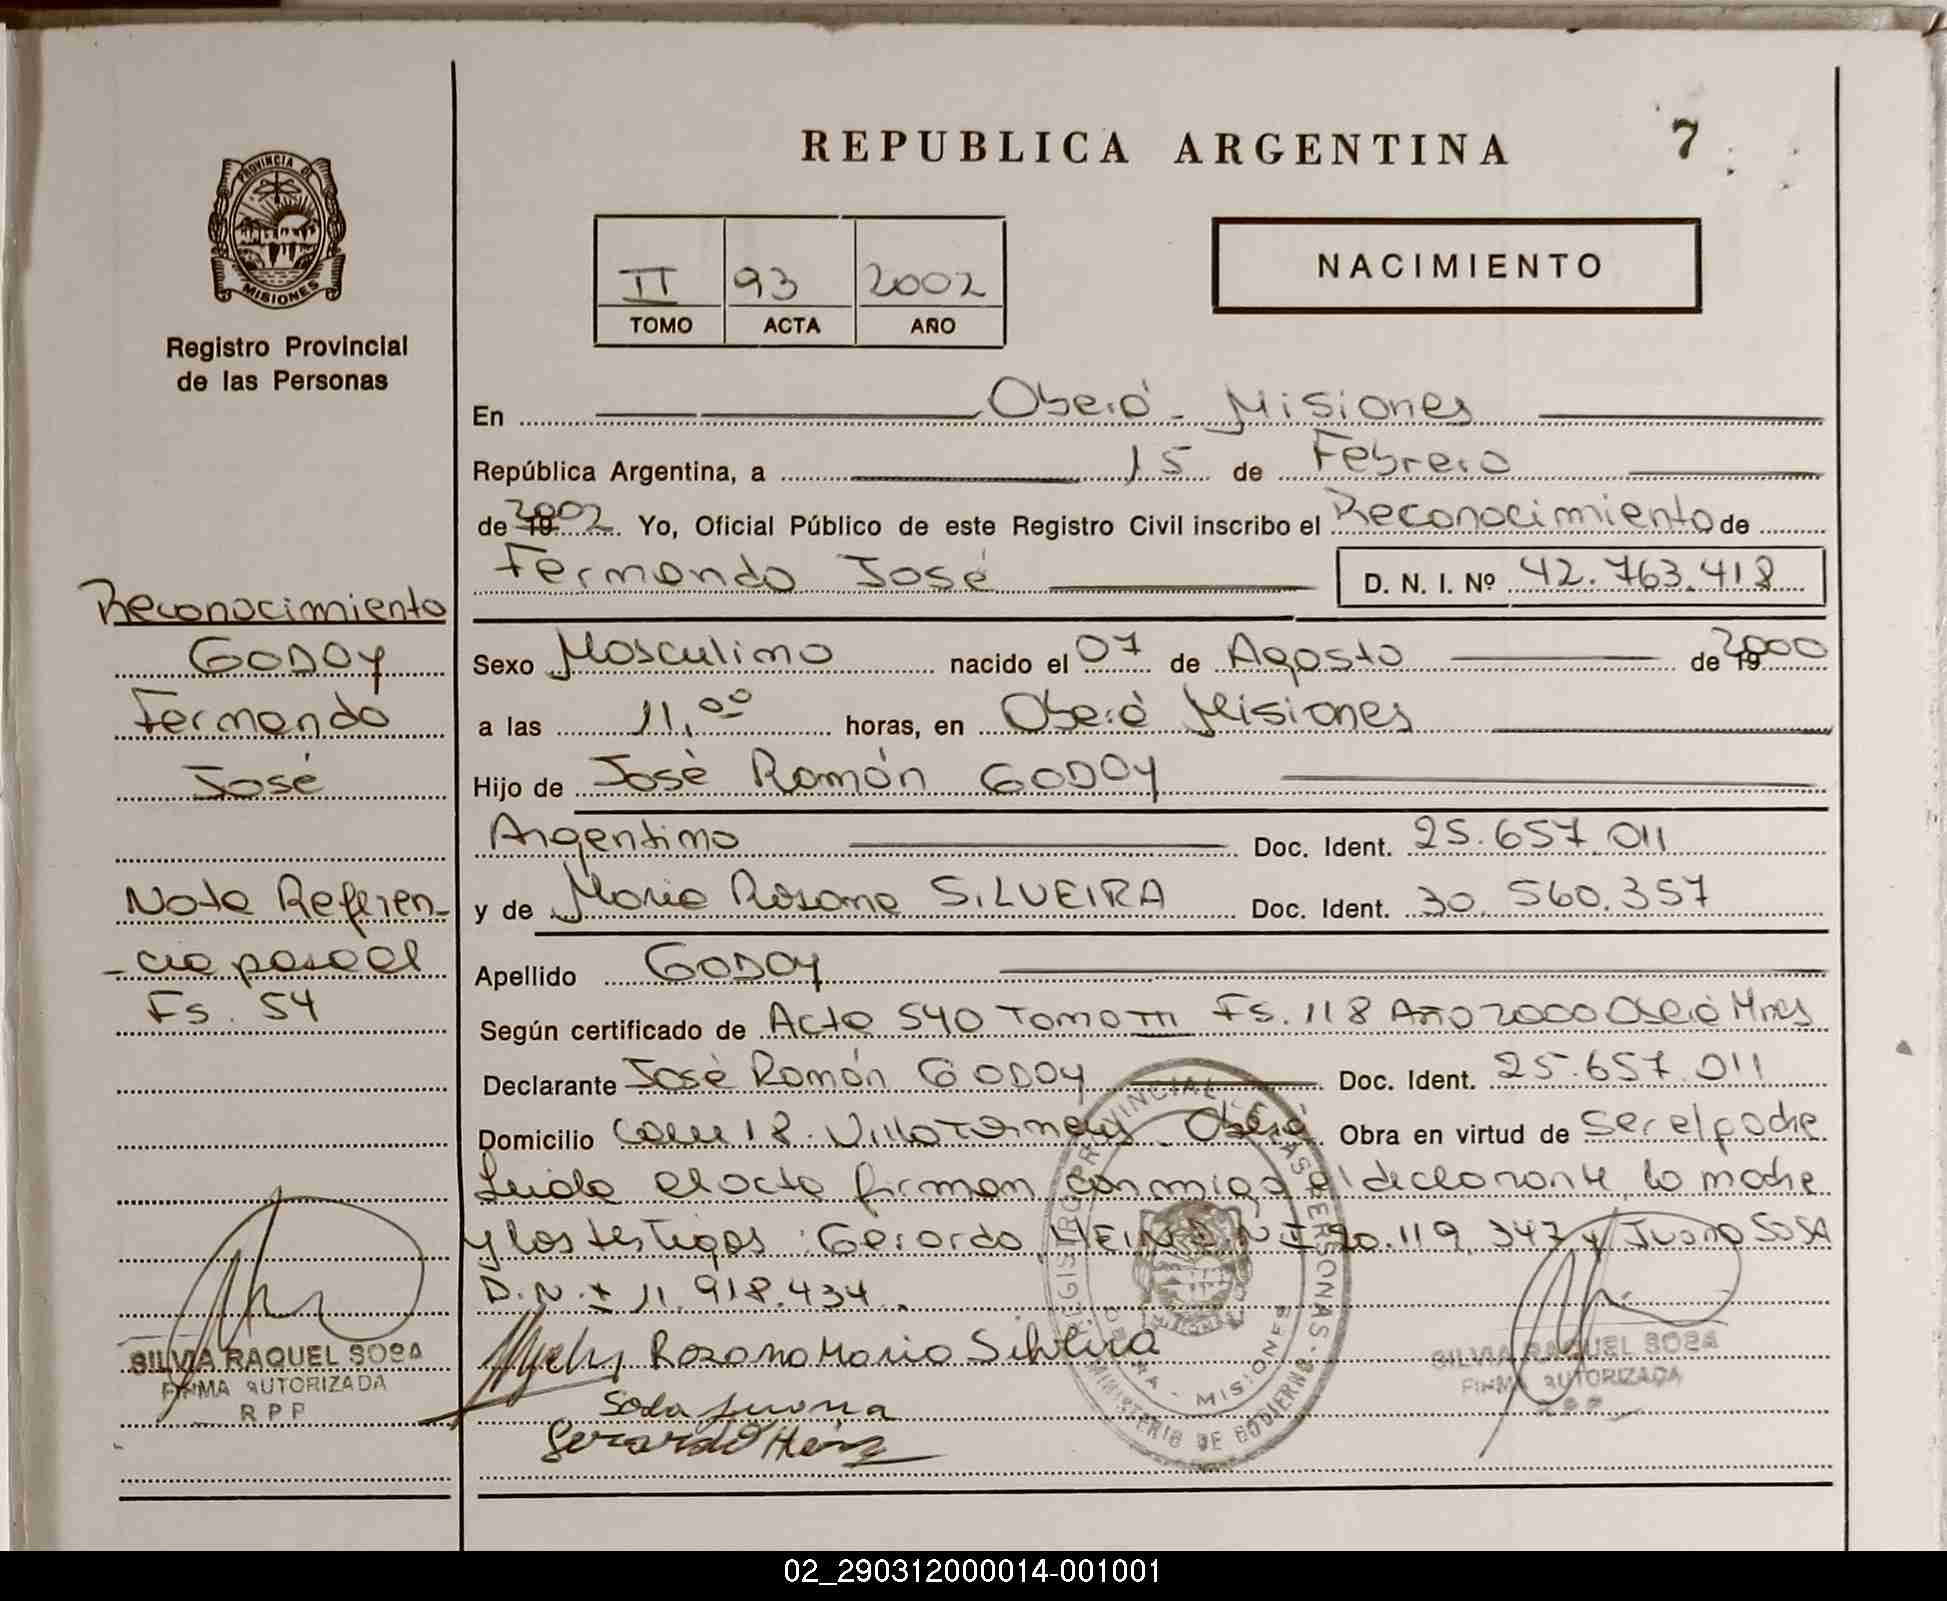 REPUBLICA ARGENTINA
7
PROVINCIA DE MISIONES
Registro Provincial
de las Personas
II 93 2002
TOMO ACTA AÑO
NACIMIENTO
En Oberá - Misiones
República Argentina, a 15 de Febrero
de 2002. Yo, Oficial Público de este Registro Civil inscribo el Reconocimiento de
Fernando José D. N. I. Nº 42.763.418
Sexo Masculino nacido el 07 de Agosto de 2000
a las 11,00 horas, en Oberá Misiones
Hijo de José Ramón GODOY
Argentino Doc. Ident. 25.657.011
y de María Rosana SILVEIRA Doc. Ident. 30.560.357
Apellido GODOY
Según certificado de Acta 540 Tomo III Fs. 118 Año 2000 Oberá Mnes
Declarante José Ramón GODOY Doc. Ident. 25.657.011
Domicilio Calle 18. Villa Oberá Obra en virtud de ser el padre
Leida el acta firman conmigo el declarante, la madre
y los testigos: Gerardo D.N.I 20.119.347 y Juana SOSA
D.N.I 11.918.434.
Rosana Maria Silveira
Sosa Juana
Gerardo
Reconocimiento
GODOY
Fernando
José
Nota Referen-
-cia pase al
Fs. 54
SILVIA RAQUEL SOSA
FIRMA AUTORIZADA
R P P
REGISTRO PROVINCIAL DE LAS PERSONAS - MINISTERIO DE GOBIERNO
OBERA - MISIONES
SILVIA RAQUEL SOSA
FIRMA AUTORIZADA
R P P
02_290312000014-001001